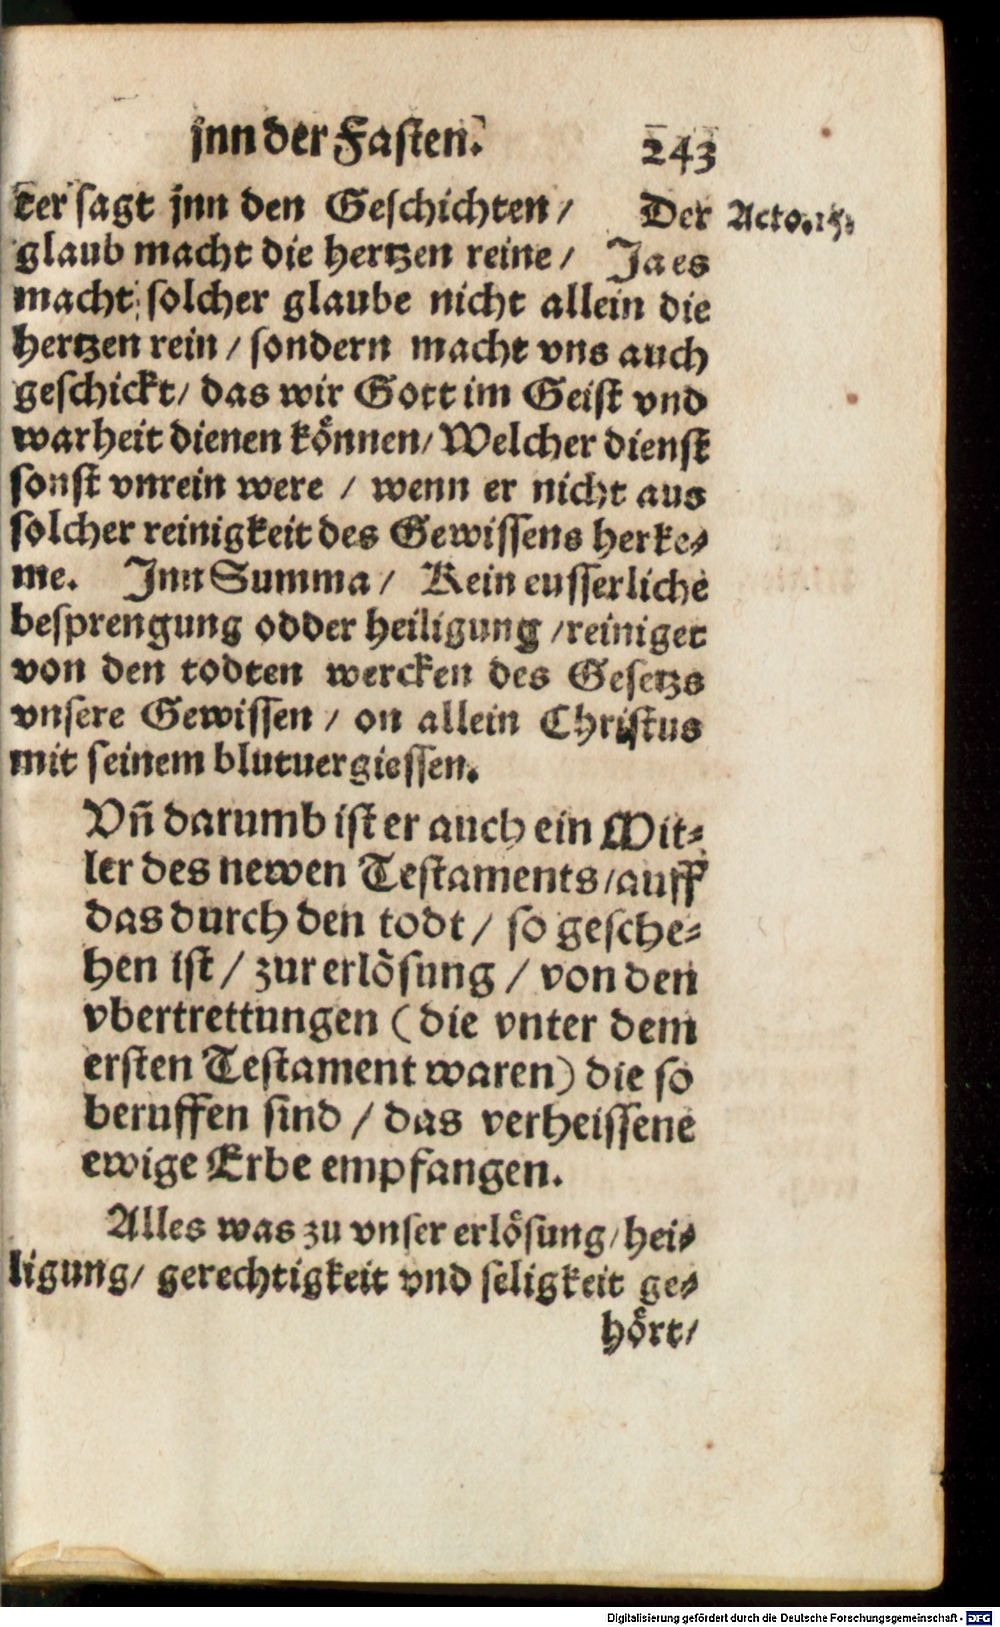 jnn der Fasten. 243
ter sagt jnn den Geschichten / Der Acto.15.
glaub macht die hertzen reine / Ja es
macht solcher glaube nicht allein die
hertzen rein / sondern macht vns auch
geschickt / das wir Gott im Geist vnd
warheit dienen können / Welcher dienst
sonst vnrein were / wenn er nicht aus
solcher reinigkeit des Gewissens herke⸗
me. Jnn Summa / Kein eusserliche
besprengung odder heiligung / reiniget
von den todten wercken des Gesetzs
vnsere Gewissen / on allein Christus
mit seinem blutuergiessen.
Vñ darumb ist er auch ein Mit⸗
ler des newen Testaments / auff
das durch den todt / so gesche⸗
hen ist / zur erlösung / von den
vbertrettungen (die vnter dem
ersten Testament waren) die so
beruffen sind / das verheissene
ewige Erbe empfangen.
Alles was zu vnser erlösung / hei⸗
ligung / gerechtigkeit vnd seligkeit ge⸗
hört /
Digitalisierung gefördert durch die Deutsche Forschungsgemeinschaft - DFG